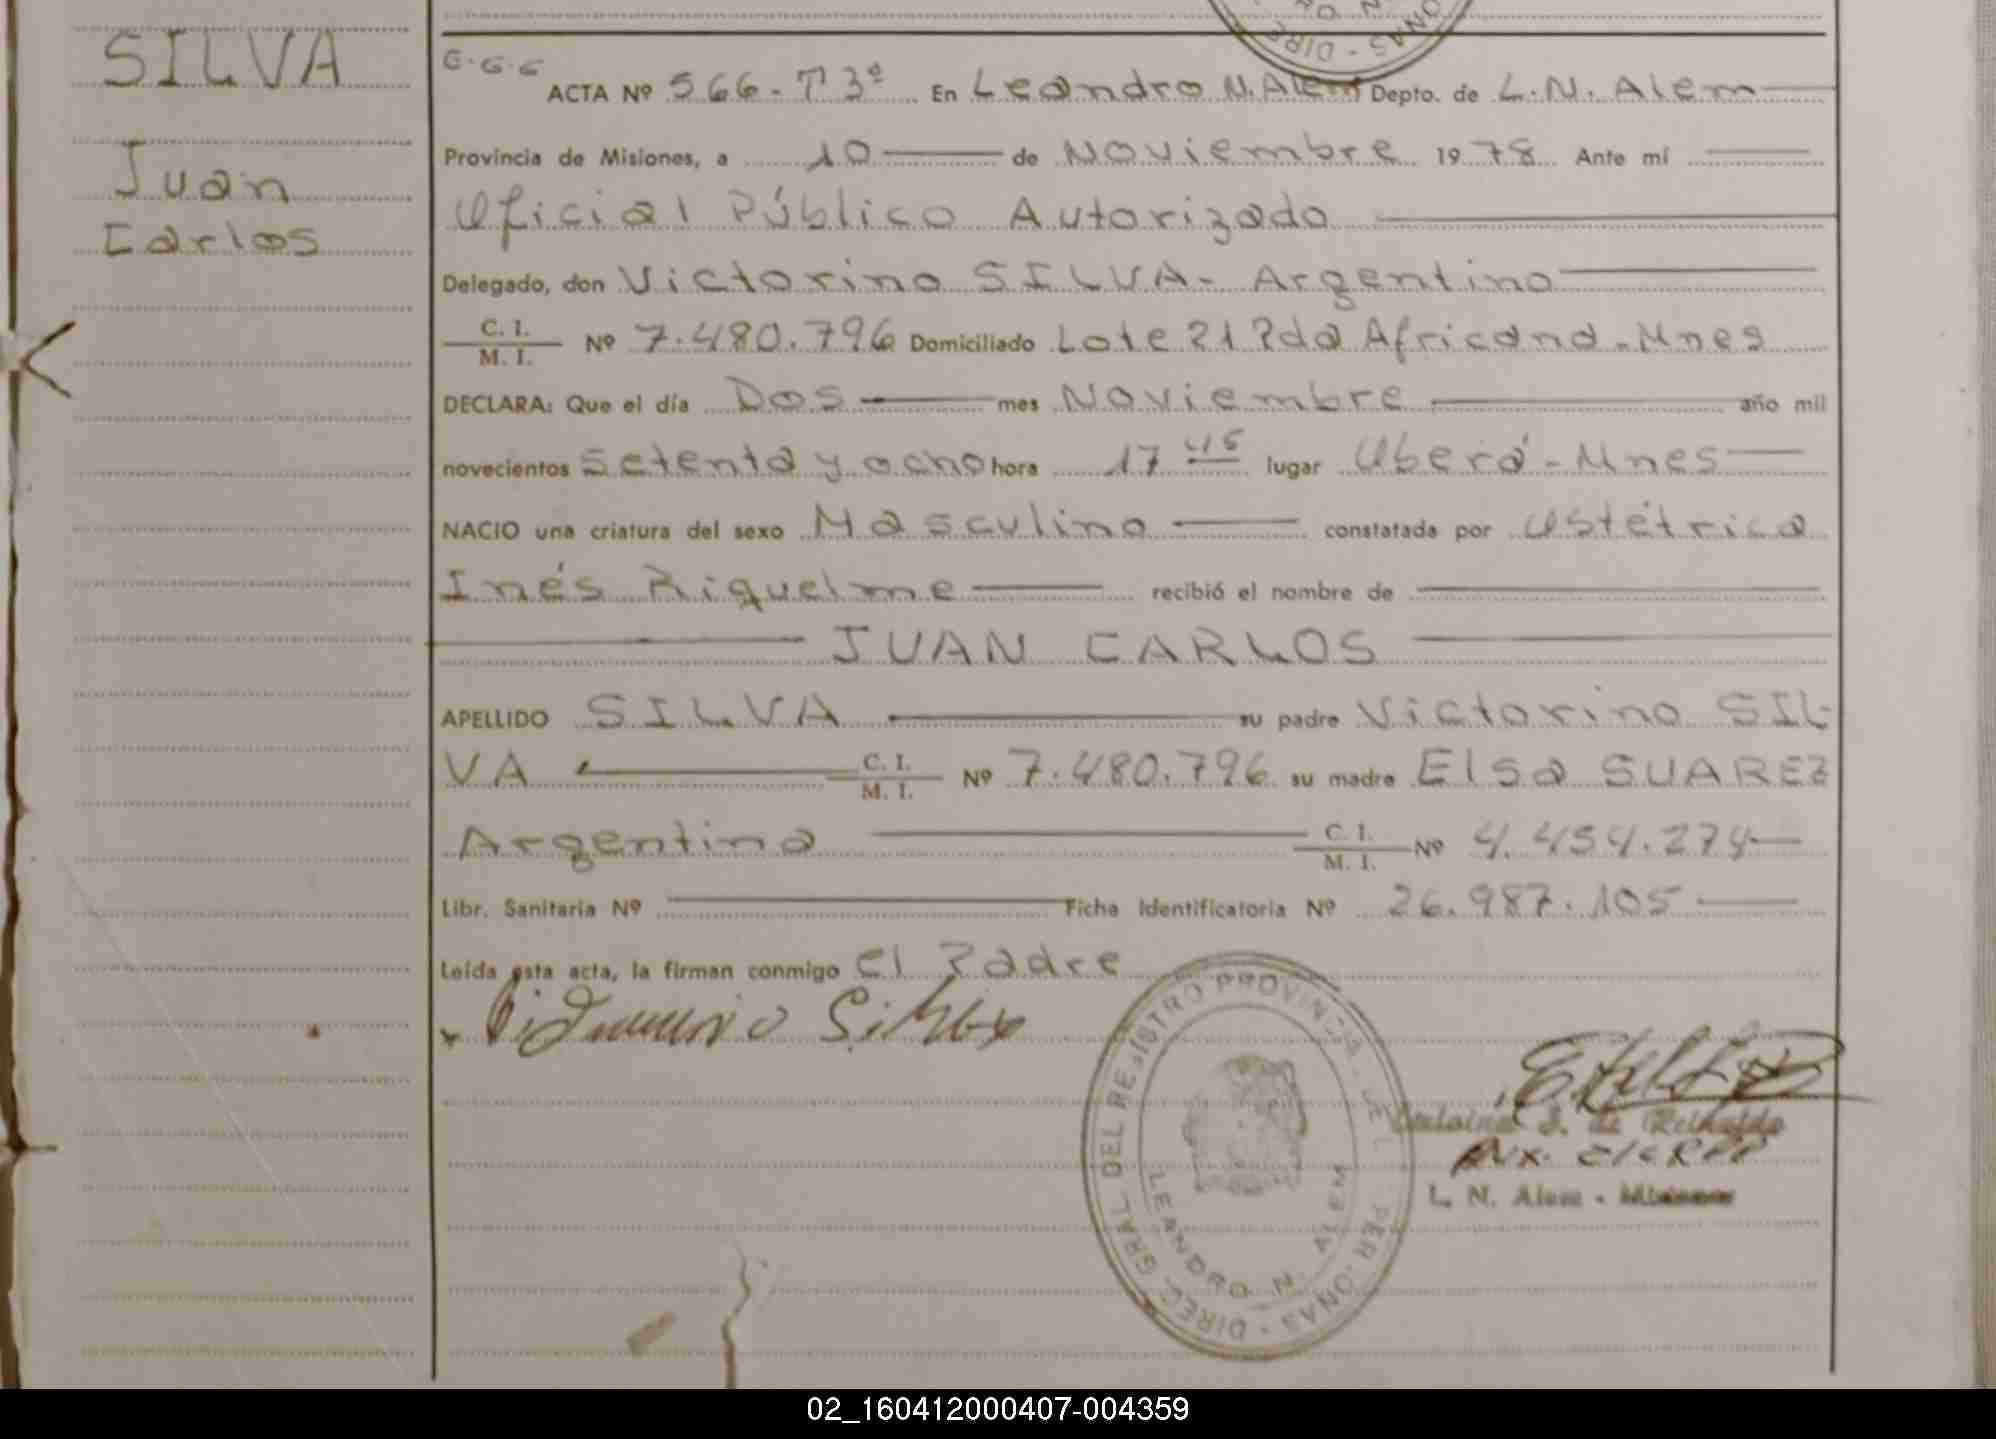 SILVA
Juan
Carlos
G.G.G
ACTA Nº 566-Tº3º En Leandro N. Alem Depto. de L.N. Alem
Provincia de Misiones, a 10 de Noviembre 1978 Ante mí
Oficial Público Autorizado
Delegado, don Victorino SILVA - Argentino
C. I.
M. I. Nº 7.480.796 Domiciliado Lote 21 Pda Africana - Mnes
DECLARA: Que el día Dos mes Noviembre año mil
novecientos setenta y ocho hora 17 45 lugar Oberá - Mnes
NACIO una criatura del sexo Masculino constatada por Ostétrica
Inés Riquelme recibió el nombre de
JUAN CARLOS
APELLIDO SILVA su padre Victorino SIL-
VA C. I.
M. I. Nº 7.480.796 su madre Elsa SUAREZ
Argentina C. I.
M. I. Nº 4.454.274
Libr. Sanitaria Nº Ficha Identificatoria Nº 26.987.105
Leída esta acta, la firman conmigo El Padre
Silva
DIREC. GRAL DEL REGISTRO PROVINCIAL DE L PERSONAS
LEANDRO N. ALEM
J. de Reinaldo
AUX.
L. N. Alem - Misiones
02_160412000407-004359